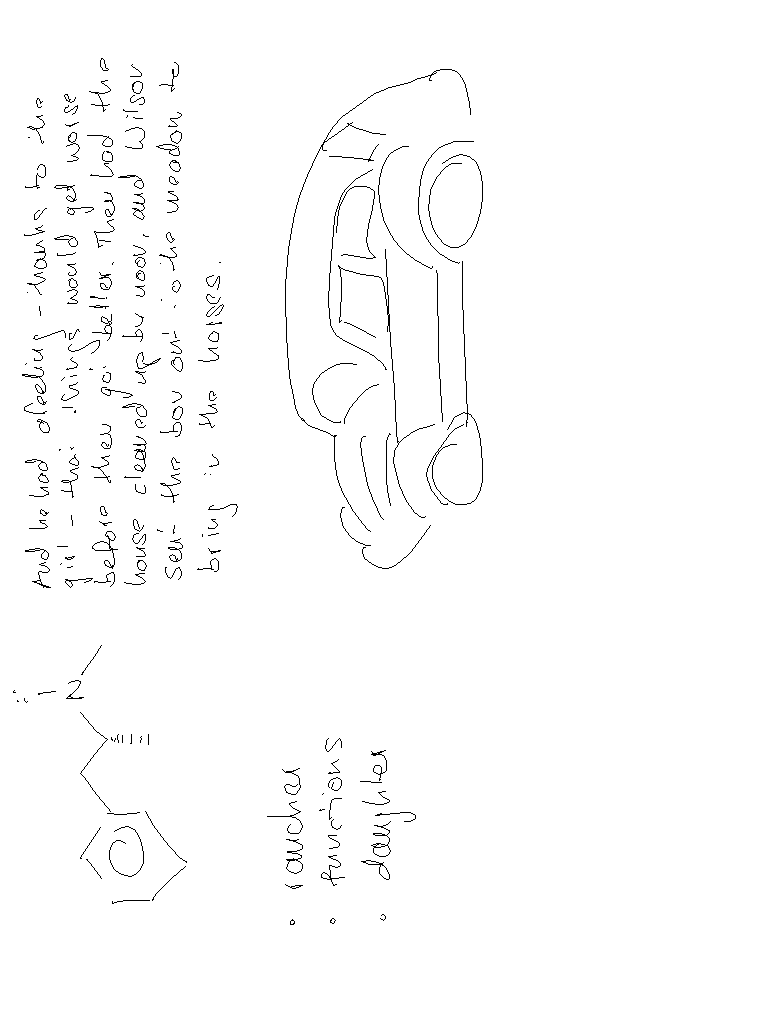 And he had a feeling - thanks to the
girl - that things would get worse
before they got better. They had the
house cleaned up by noon, and Wilson
sent the boy out to the meadow to
bring in the horses.
N
• rancher
• functions
• daughter